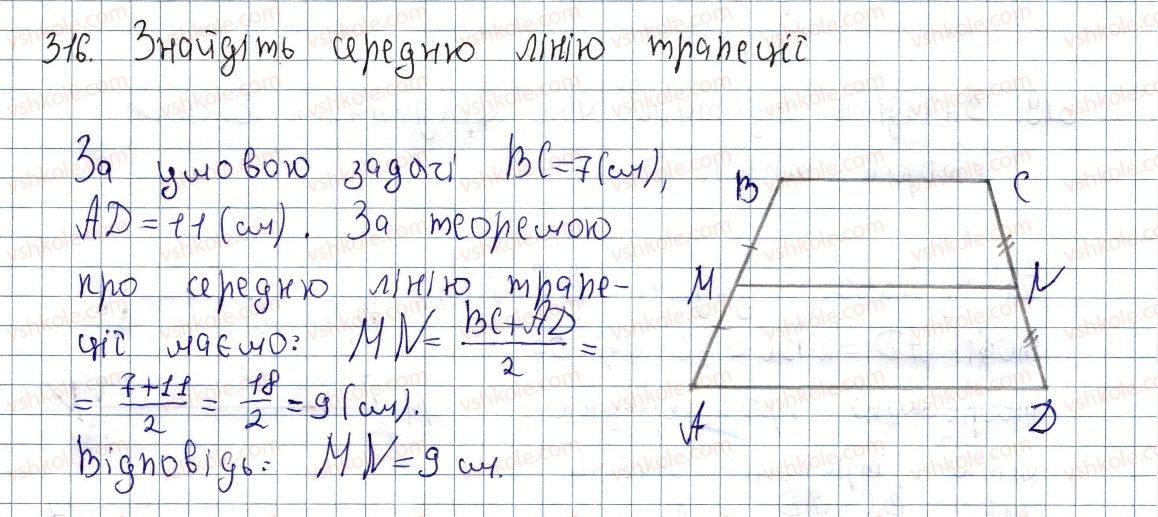 316. Знайдіть середню лінію трапеції
За умовою задачі BC=7(см),
AD=11(см). За теоремою
про середню лінію трапе-
ції маємо: MN= BC+AD/2 =
= 7+11/2 = 18/2 = 9(см).
Відповідь: MN=9 см.
B C
M N
A D